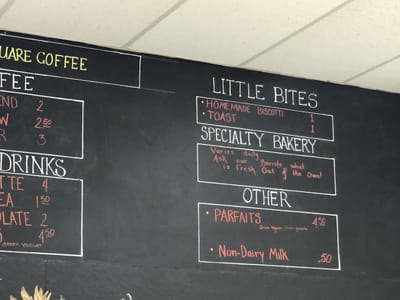 UARE COFFEE
FEE
END 2
W 2.50
R 3
DRINKS
TTE 4
EA 1.50
OLATE 2
4.50
GREEK YOGURT
LITTLE BITES
• HOMEMADE BISCOTTI 1
• TOAST 1
SPECIALTY BAKERY
Varies daily
Ask our Barista what
is Fresh Out of the Oven!
OTHER
• PARFAITS 4.50
• Non-Dairy Milk .50